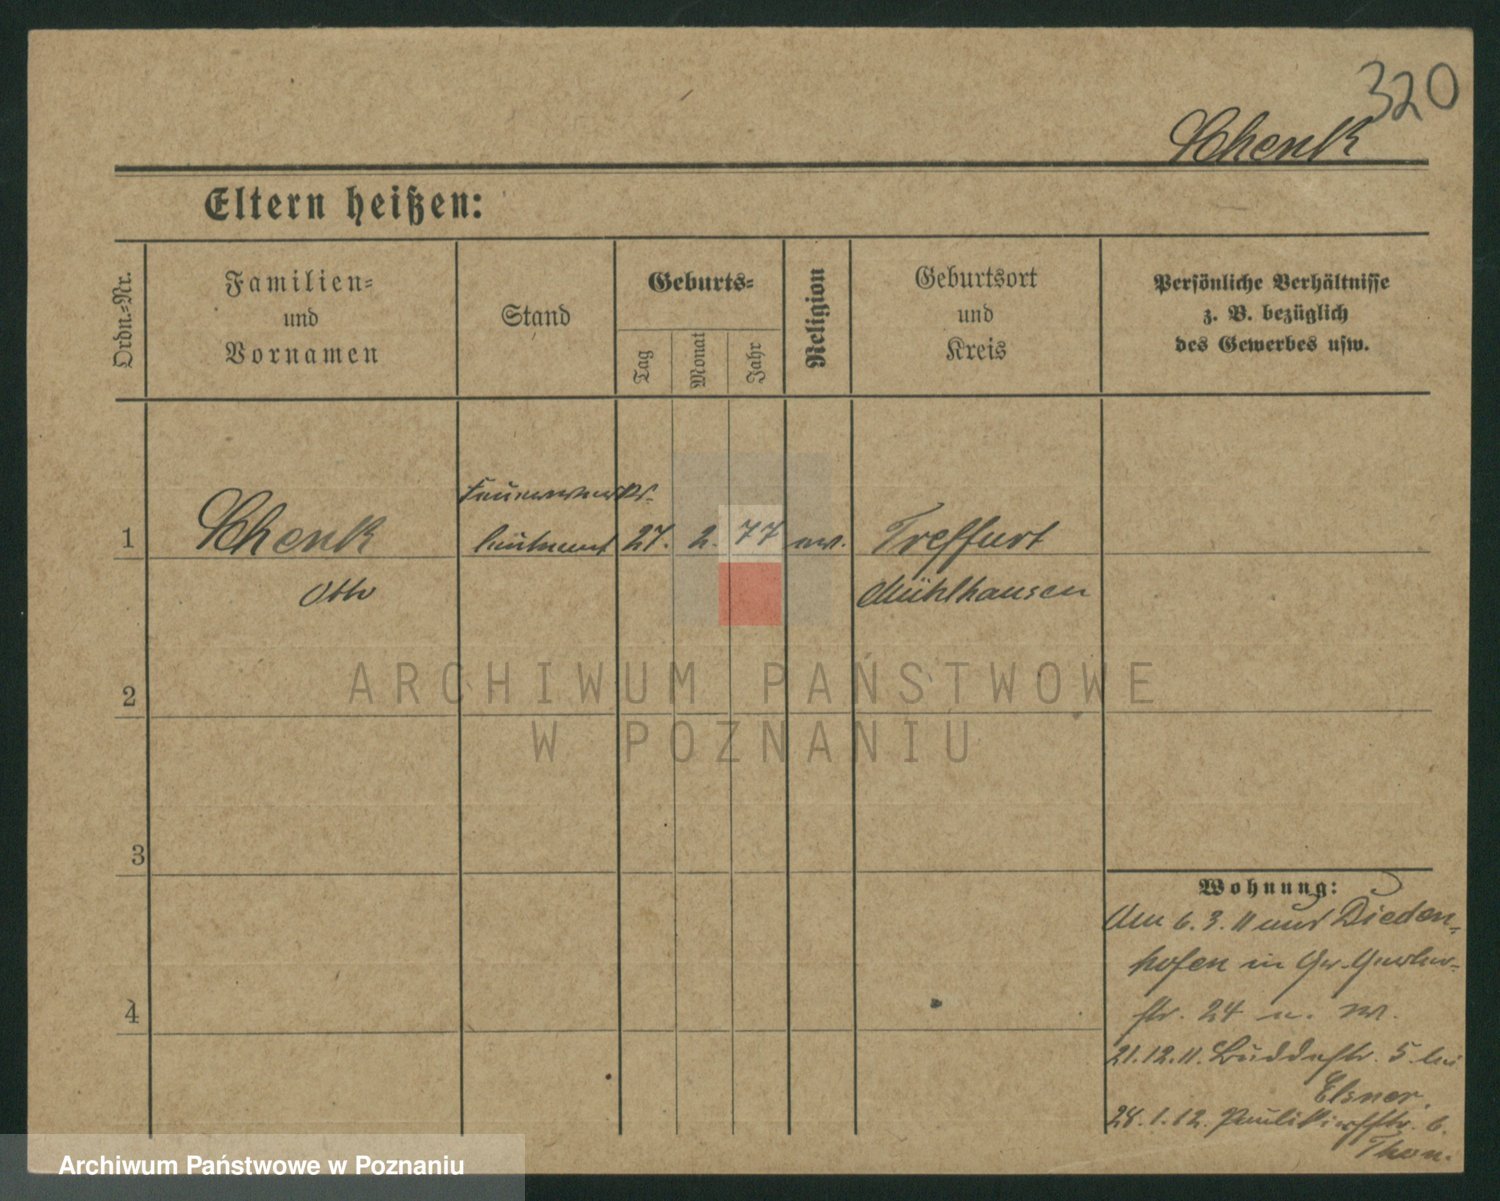 320
Schenk
Eltern heißen:
Ordn.-Nr.
Familien-
und
Vornamen
Stand
Geburts-
Tag
Monat
Jahr
Religion
Geburtsort
und
Kreis
Persönliche Verhältnisse
z. B. bezüglich
des Gewerbes usw.
Feuerwerks-
1 Schenk leutnant 27. 2. 77 ev. Treffurt
Otto Mühlhausen
ARCHIWUM PAŃSTWOWE
2
W POZNANIU
3
Wohnung:
Am 6. 3. 11 aus Dieden-
hofen in Gr. Gerber-
4
str. 24 u.
21.12.11. Buddestr. 5. bei
Elsner.
28.1.12. Paulikirchstr. 6.
Thon.
Archiwum Państwowe w Poznaniu